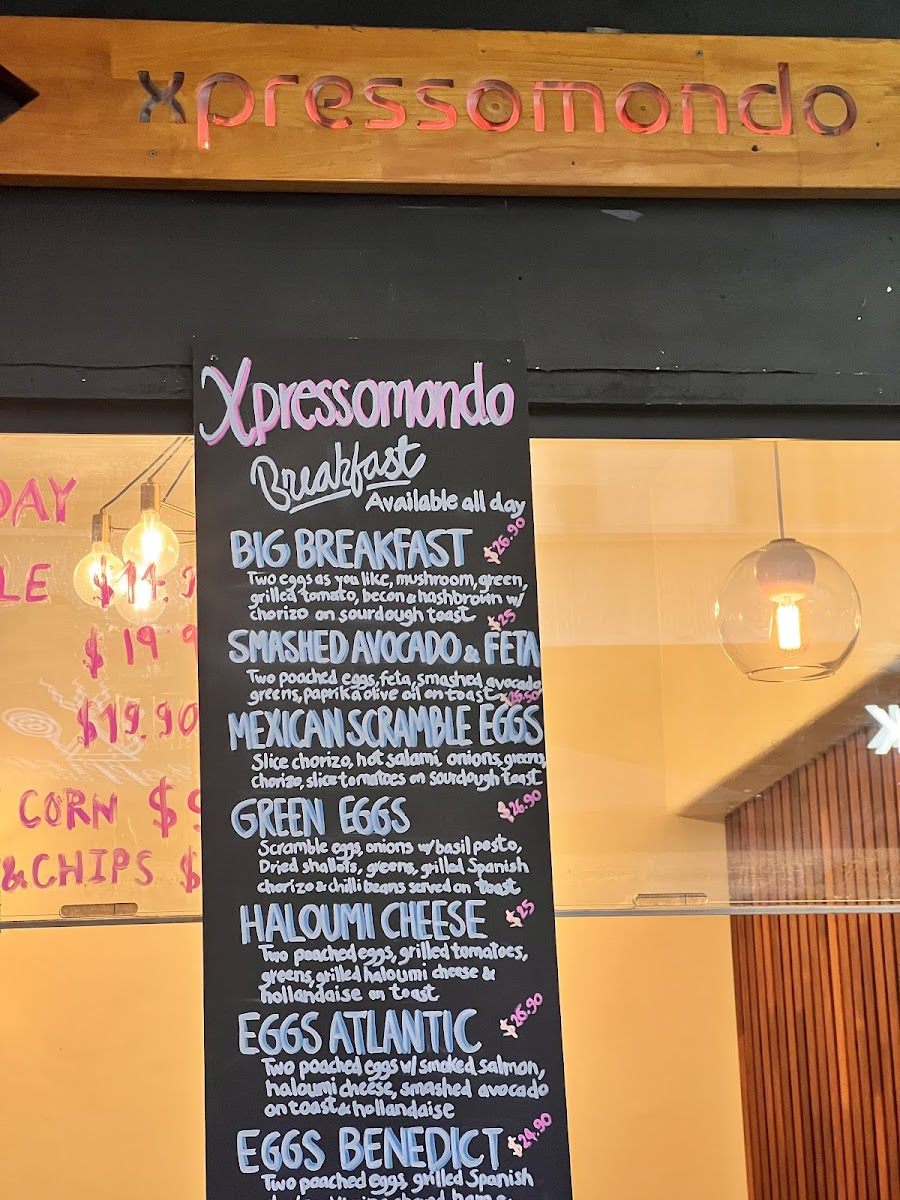 xpressomondo
Xpressomondo
Breakfast
Available all day
BIG BREAKFAST $26.90
Two eggs as you like, mushroom, green,
grilled tomato, becon & hashbrown w/
chorizo on sourdough toast
SMASHED AVOCADO & FETA $25
Two poached eggs, feta, smashed avocado
greens, paprika olive oil on toast
MEXICAN SCRAMBLE EGGS
Slice chorizo, hot salami, onions, greens,
chorizo, slice tomatoes on sourdough toast
GREEN EGGS $26.90
Scramble eggs, onions w/ basil pesto,
Dried shallots, greens, grilled Spanish
chorizo & chilli beans served on toast
HALOUMI CHEESE $25
Two poached eggs, grilled tomatoes,
greens, grilled haloumi cheese &
hollandaise on toast
EGGS ATLANTIC $26.90
Two poached eggs w/ smoked salmon,
haloumi cheese, smashed avocado
on toast & hollandaise
EGGS BENEDICT $24.90
Two poached eggs, grilled Spanish
DAY
LE
$19.9
$19.90
CORN $
&CHIPS $